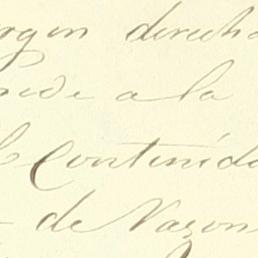 rgen derecha
nde a la
l Contenido
de Nazon